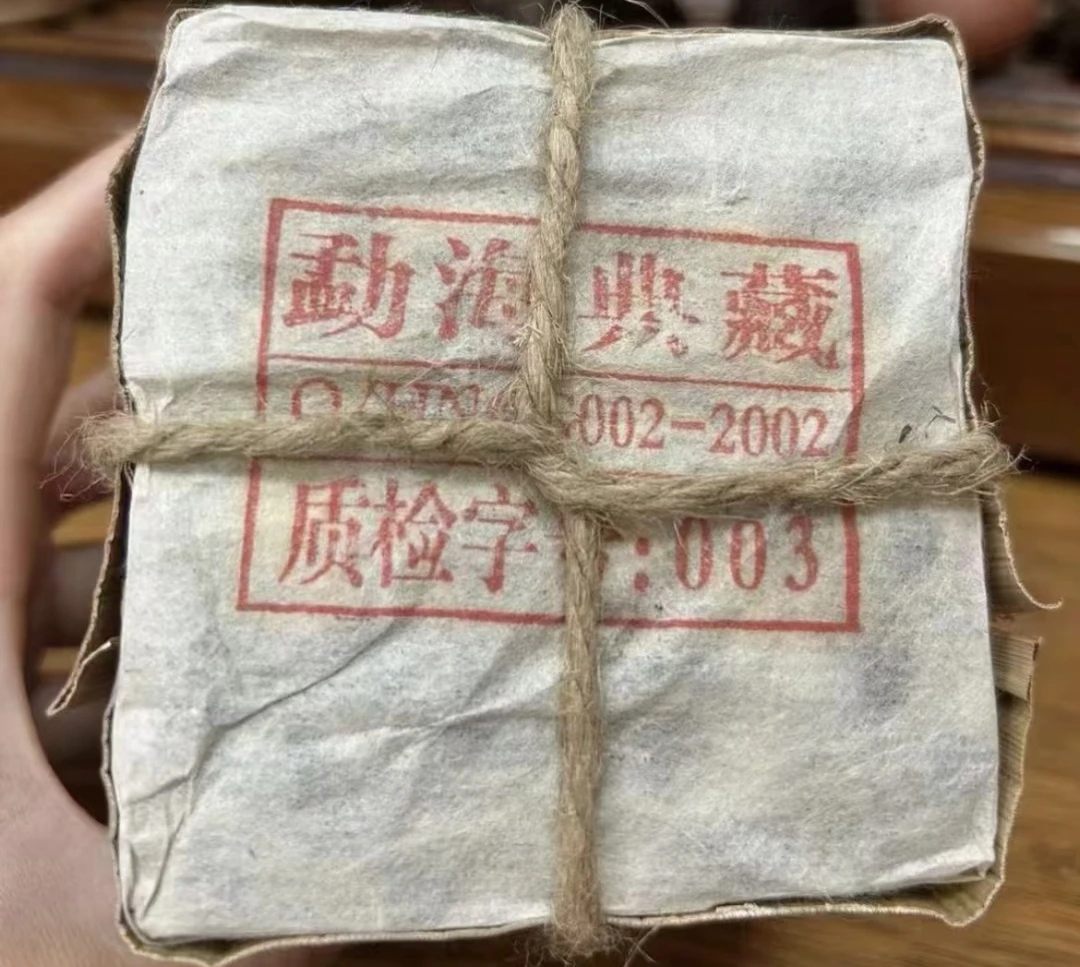 勐海典藏
002-2002
质检字号:003